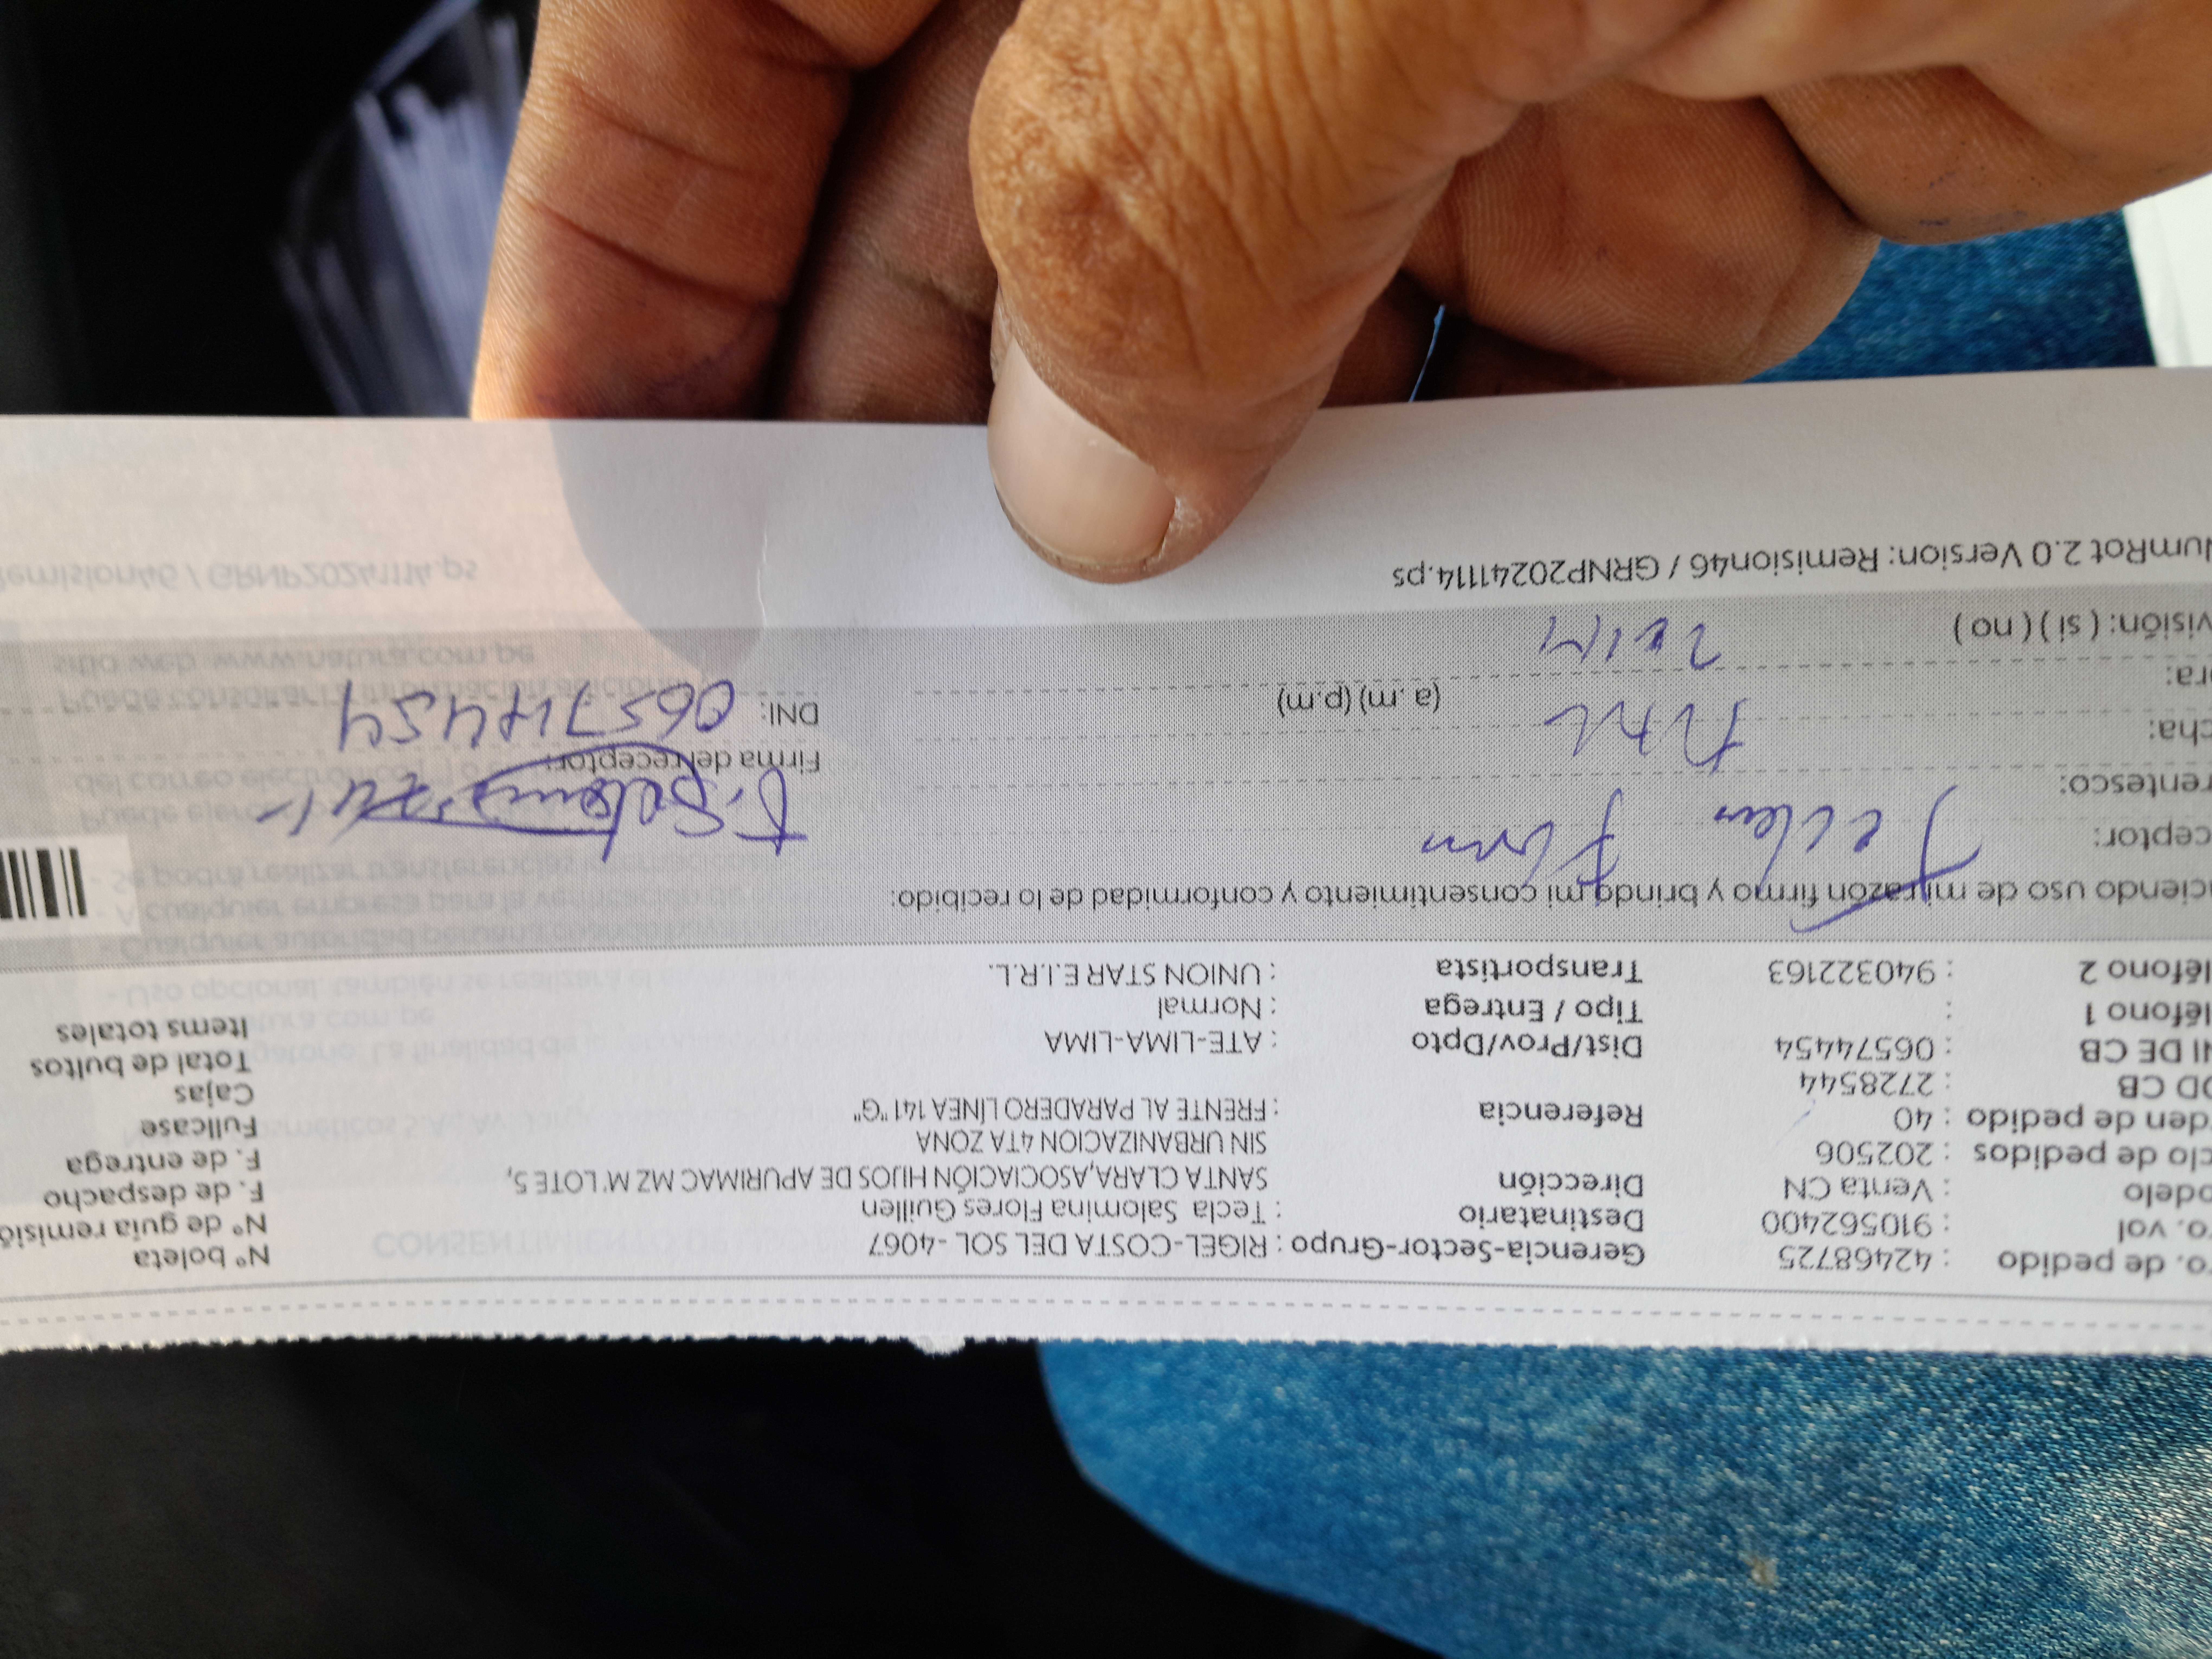 o. de pedido : 42468725 Gerencia-Sector-Grupo : RIGEL-COSTA DEL SOL - 4067 N° boleta
o. vol : 910562400 Destinatario : Tecla Salomina Flores Guillen N° de guía remisió
odelo : Venta CN Dirección SANTA CLARA,ASOCIACIÓN HIJOS DE APURIMAC MZ M' LOTE 5, F. de despacho
clo de pedidos : 202506 SIN URBANIZACION 4TA ZONA F. de entrega
den de pedido : 40 Referencia : FRENTE AL PARADERO LÍNEA 141 "G" Fullcase
OD CB : 2728544 Cajas
NI DE CB : 06574454 Dist/Prov/Dpto : ATE-LIMA-LIMA Total de bultos
léfono 1 : Tipo / Entrega : Normal Items totales
léfono 2 : 940322163 Transportista : UNION STAR E.I.R.L.
ciendo uso de mi razón firmo y brindo mi consentimiento y conformidad de lo recibido:
ceptor: Tecla Flores
rentesco: Firma del receptor:
cha: DNI: 06574454
ora: (a. m) (p.m)
visión: ( si ) ( no )
NumRot 2.0 Version: Remision46 / GRNP20241114.ps